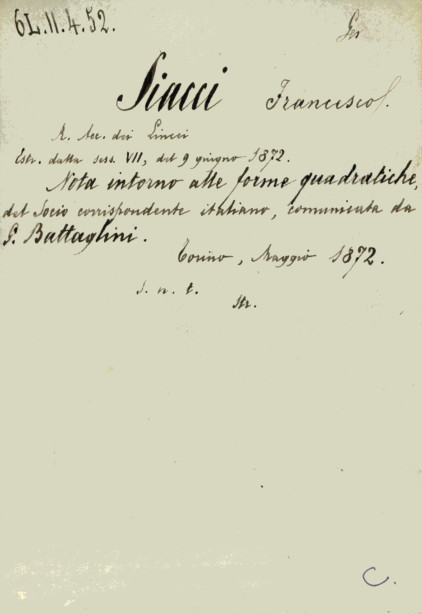 6L.II.4.52.
Siacci Francesco.
R. Acc. dei Lincei
Estr. dalla sess. VII, del 9 giugno 1872.
Nota intorno alle forme quadratiche,
del Socio corrispondente italiano, comunicata da
G. Battaglini.
Torino, Maggio 1872.
s. n. t.
str.
C.